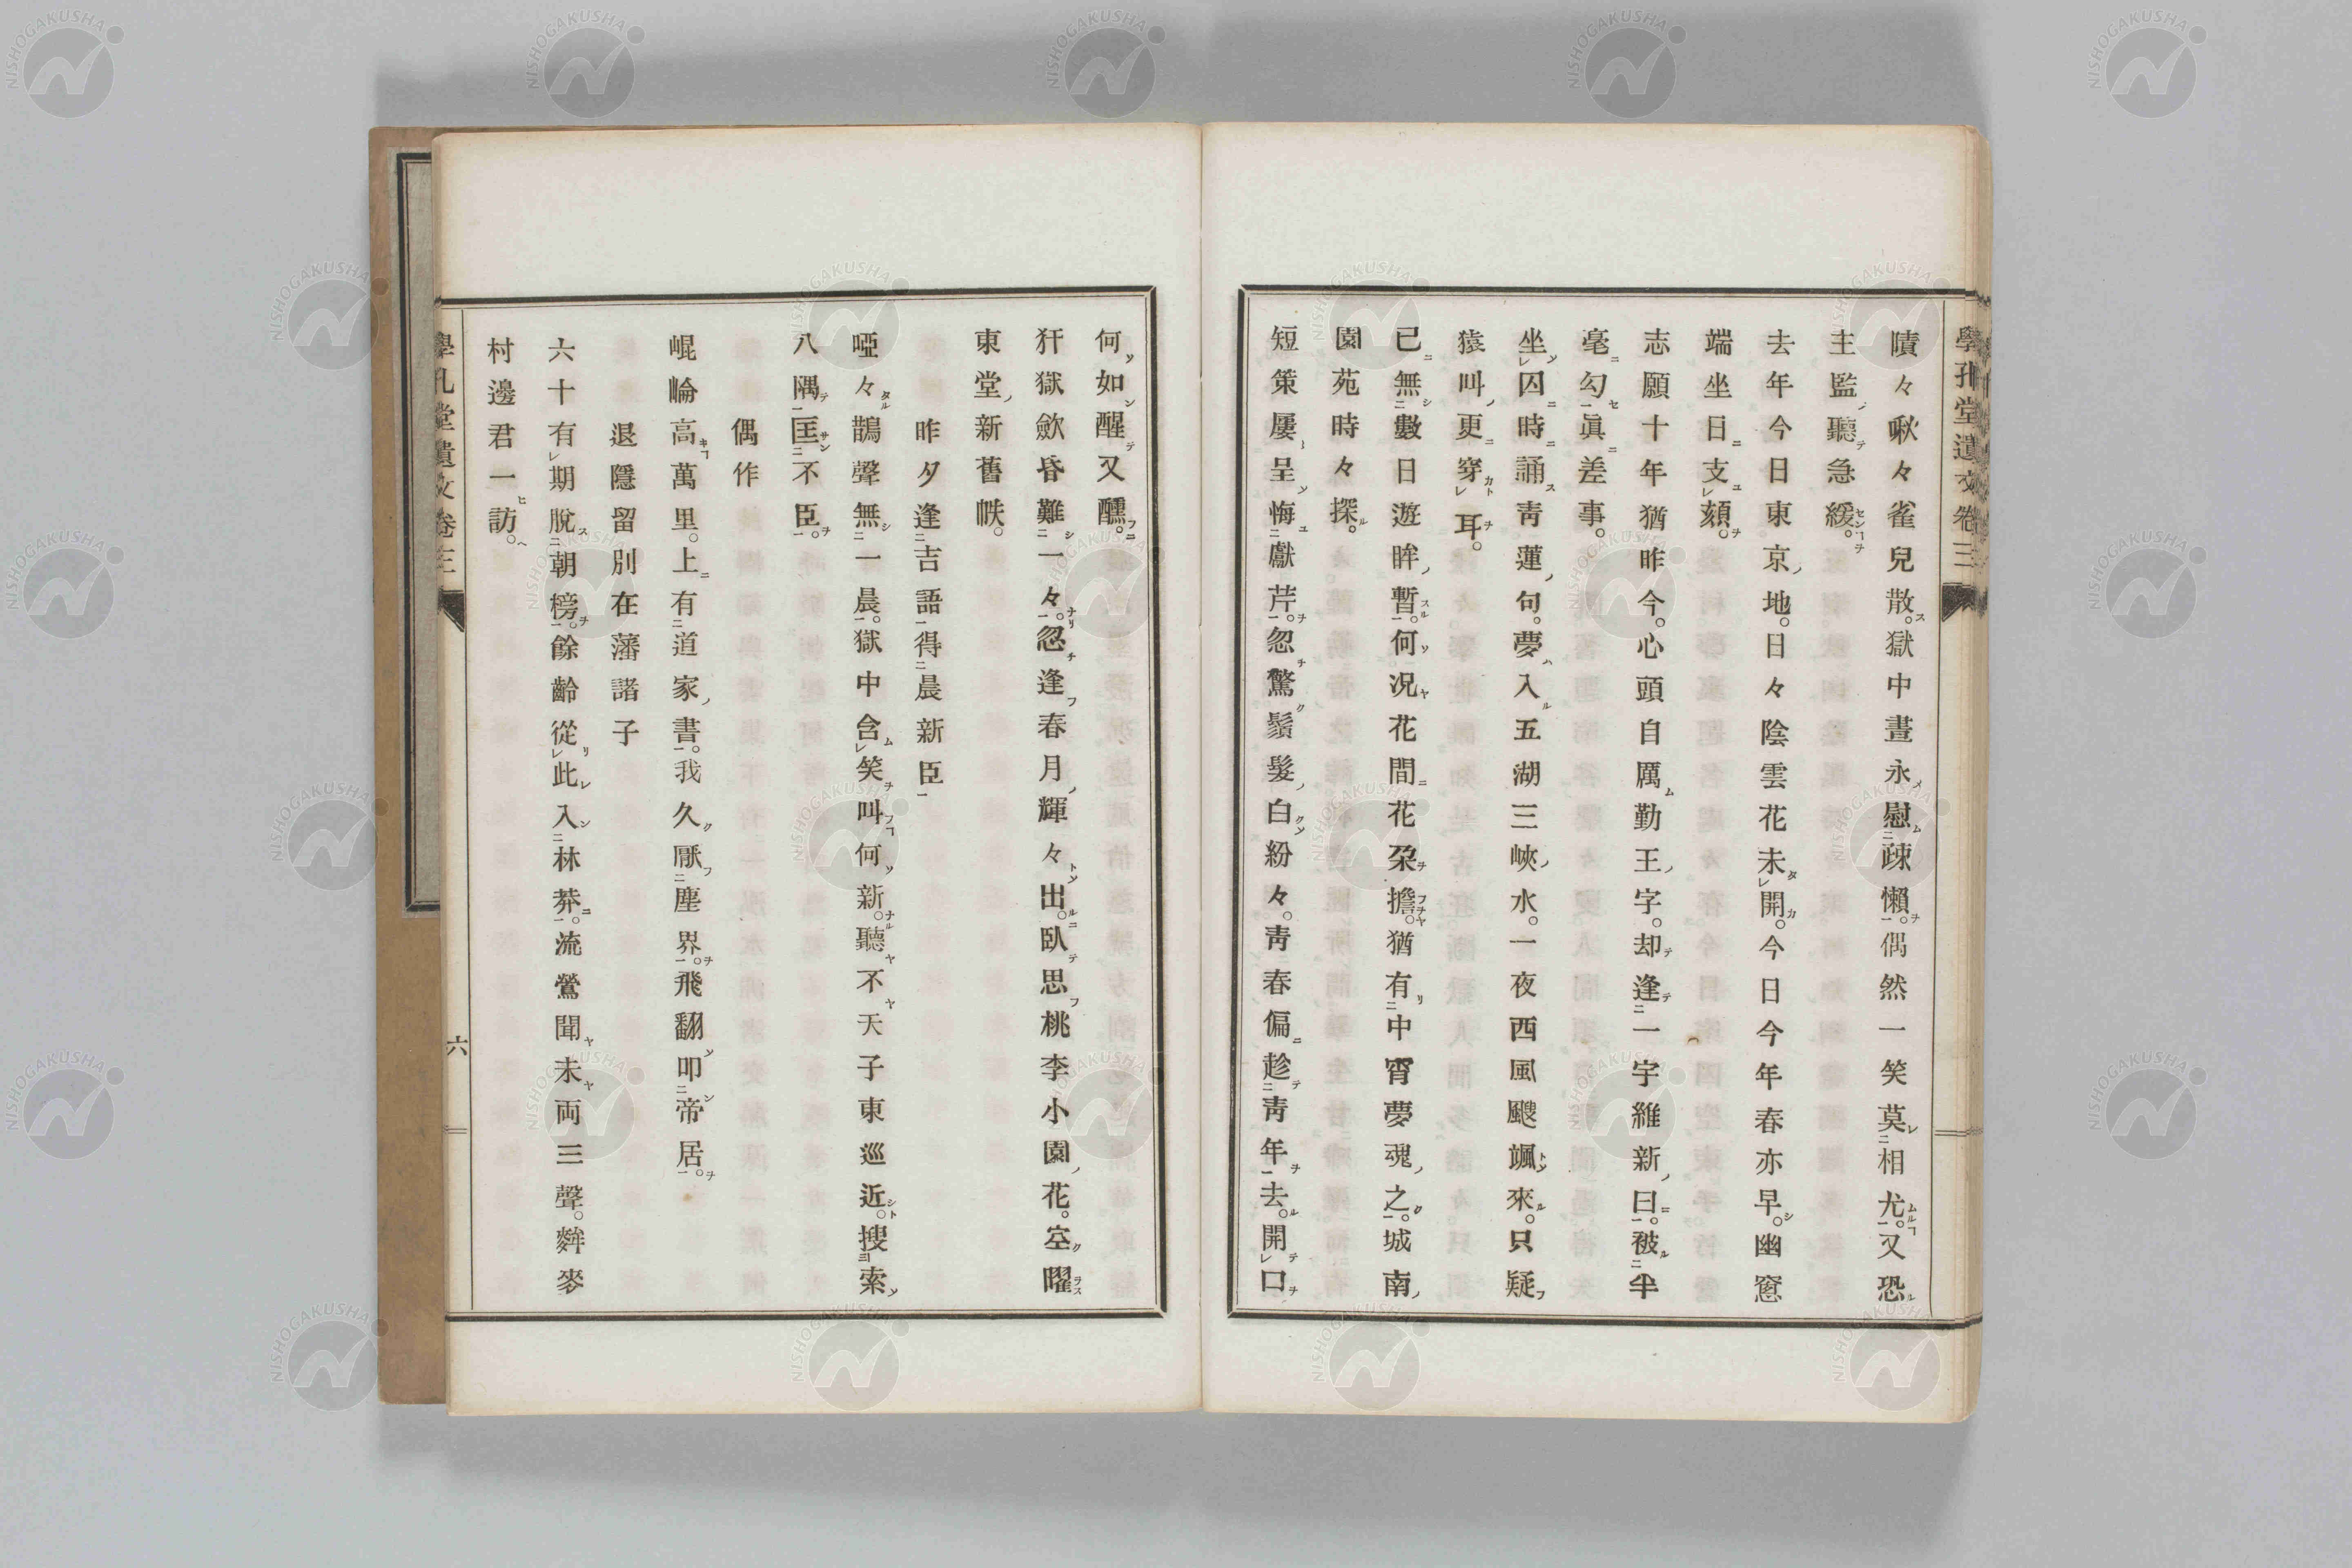 學孔堂遺文卷三
嘖々啾々雀兒散。獄中晝永慰疎懶。偶然一笑莫相尤。又恐
主監聽急緩。
去年今日東京地。日々陰雲花未開。今日今年春亦早。幽窓
端坐日支頦。
志願十年猶昨今。心頭自厲勤王字。却逢一宇維新曰。被半
毫勾眞差事。
坐囚時誦靑蓮句。夢入五湖三峽水。一夜西風颼颯來。只疑
猿叫更穿耳。
已無數日遊眸暫。何况花間花朶擔。猶有中宵夢魂之。城南
園苑時々探。
短策屢呈悔獻芹。忽驚鬚髮白紛々。靑春偏趁靑年去。開口
何如醒又醺。
犴獄歛昏難一々。忽逢春月輝々出。臥思桃李小園花。空曜
東堂新舊帙。
昨夕逢吉語得晨新臣
啞々鵲聲無一晨。獄中含笑叫何新。聽不天子東巡近。搜索
八隅匡不臣。
偶作
崐崘高萬里。上有道家書。我久厭塵界。飛翻叩帝居。
退隱留別在藩諸子
六十有期脫朝榜。餘齡從此入林莽。流鶯聞未両三聲。麰麥
村邊君一訪。
學孔堂遺文卷三
六